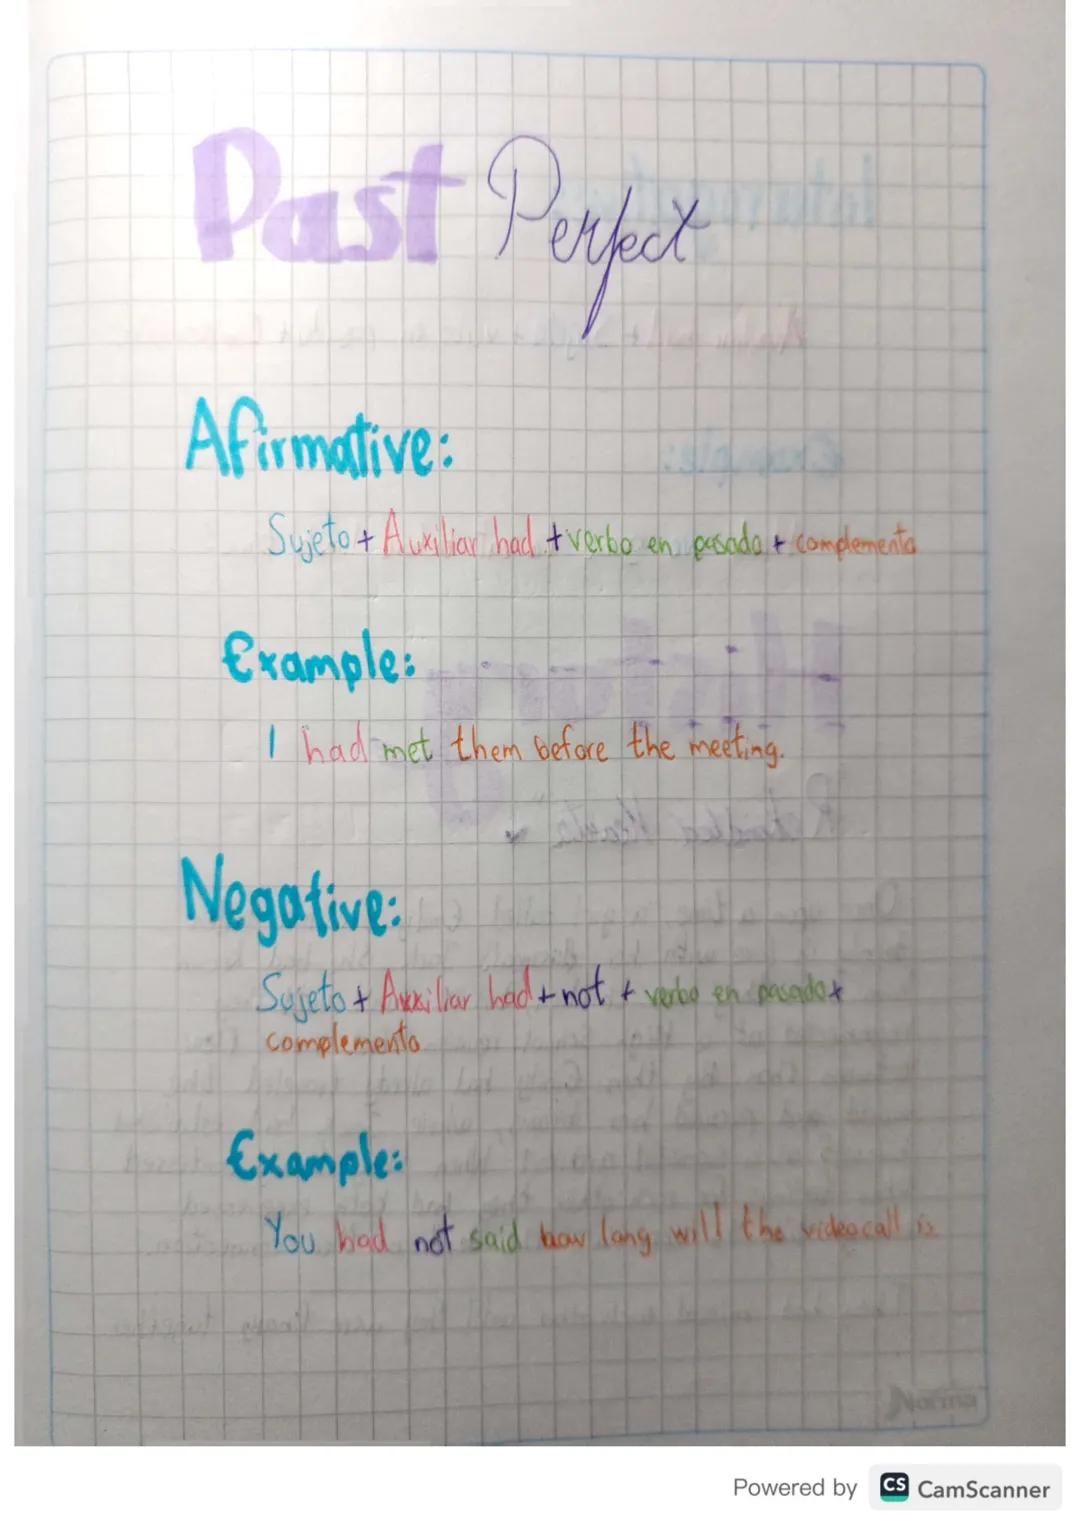 Past Perfect
Afirmative:
Sujeto + Auxiliar had + verbo en pasado + complemento
Example:
I had met them before the meeting.
Negative:
Sujeto + Auxiliar had + not + verbo en pasado +
complemento
Example:
You had not said how long will the videocall is
Norma
Powered by CS CamScanner